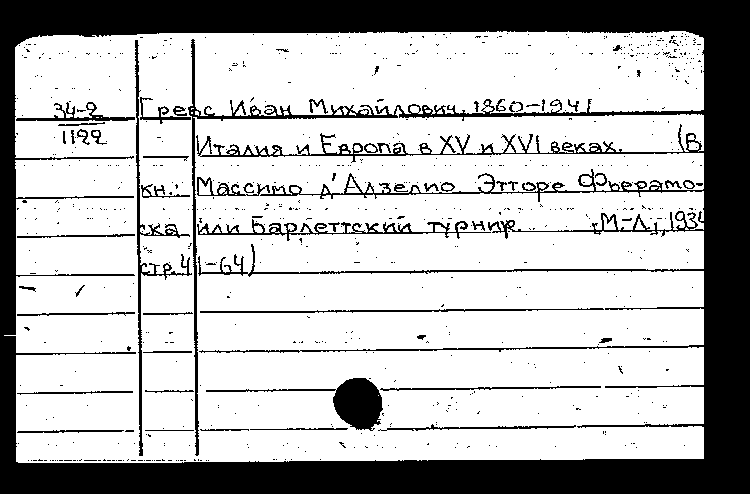 34-2
1122
Гревс, Иван Михайлович, 1860-1941
Италия и Европа в XV и XVI веках. (В
кн.: Массимо д'Адзелио Этторе Фьерамо-
ска или Барлеттский турнир. [М.-Л.], 1934
стр. 41-64)